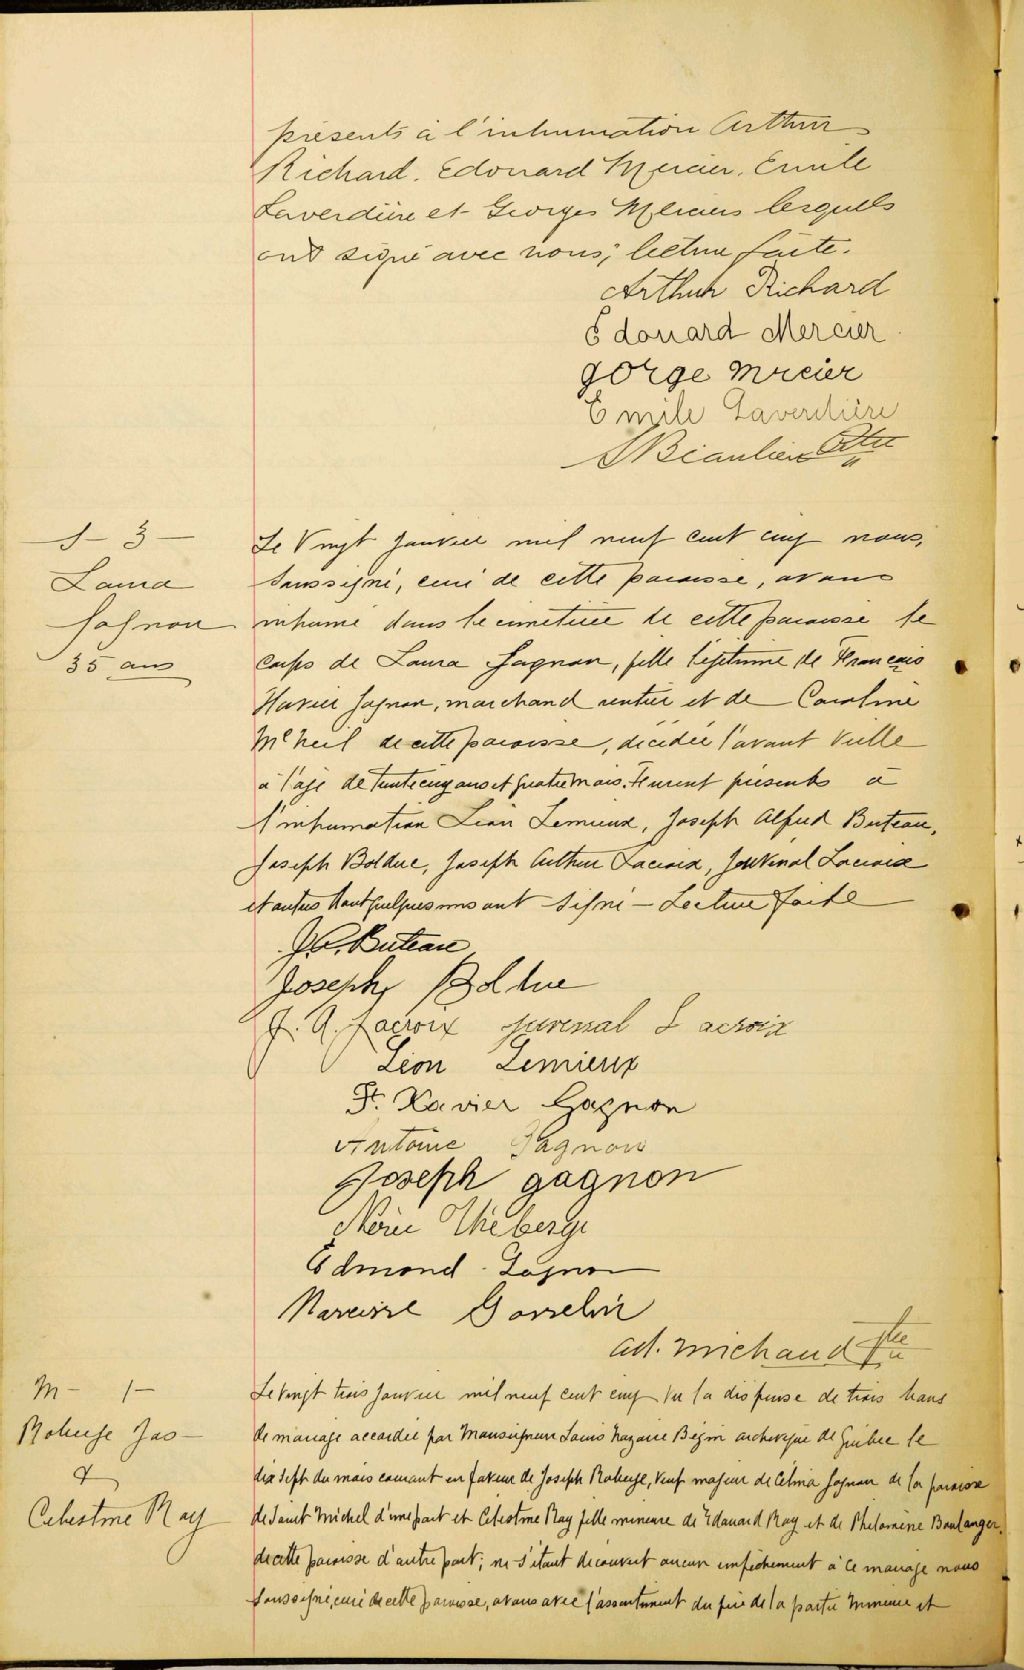 présents à l'inhumation Arthur
Richard, Edouard Mercier, Emile
Laverdière et Georges Mercier lesquels
ont signé avec nous; lecture faite.
Arthur Richard
Edouard Mercier
gorge mrcier
Emile Laverdière
Beaulieu Ptre
S - 3 -
Laura
Gagnon
35 ans
Le Vingt Janvier mil neuf cent cinq nous,
soussigné, curé de cette paroisse, avons
inhumé dans le cimetière de cette paroisse le
corps de Laura Gagnon, fille légitime de François
Xavier Gagnon, marchand rentier et de Caroline
McNeil de cette paroisse, décédée l'avant veille
à l'age de trente cinq ans et quatre mois. Furent présents à
l'inhumation Léon Lemieux, Joseph Alfred Buteau,
Joseph Bolduc, Joseph Arthur Lacroix, Juvénal Lacroix
et autres dont quelques uns ont signé - Lecture faite
J. A. Buteau
Joseph Bolduc
J. A. Lacroix Juvenal Lacroix
Léon Lemieux
F. Xavier Gagnon
Antoine Gagnon
Joseph gagnon
Nérée Théberge
Edmond Gagnon
Narcisse Gosselin
Ad. Michaud Ptre
M - 1 -
Roberge Jos -
&
Celestine Roy
Le vingt trois Janvier mil neuf cent cinq Vu la dispense de trois bans
de mariage accordée par Monseigneur Louis Nazaire Bégin archevêque de Québec le
dix sept du mois courant en faveur de Joseph Roberge, veuf majeur de Célina Gagnon de la paroisse
de Saint Michel d'une part et Célestine Roy fille mineure de Edouard Roy et de Philomène Boulanger,
de cette paroisse d'autre part; ne s'étant découvert aucun empêchement à ce mariage nous
soussigné, curé de cette paroisse, avons avec l'assentiment du père de la partie mineure et